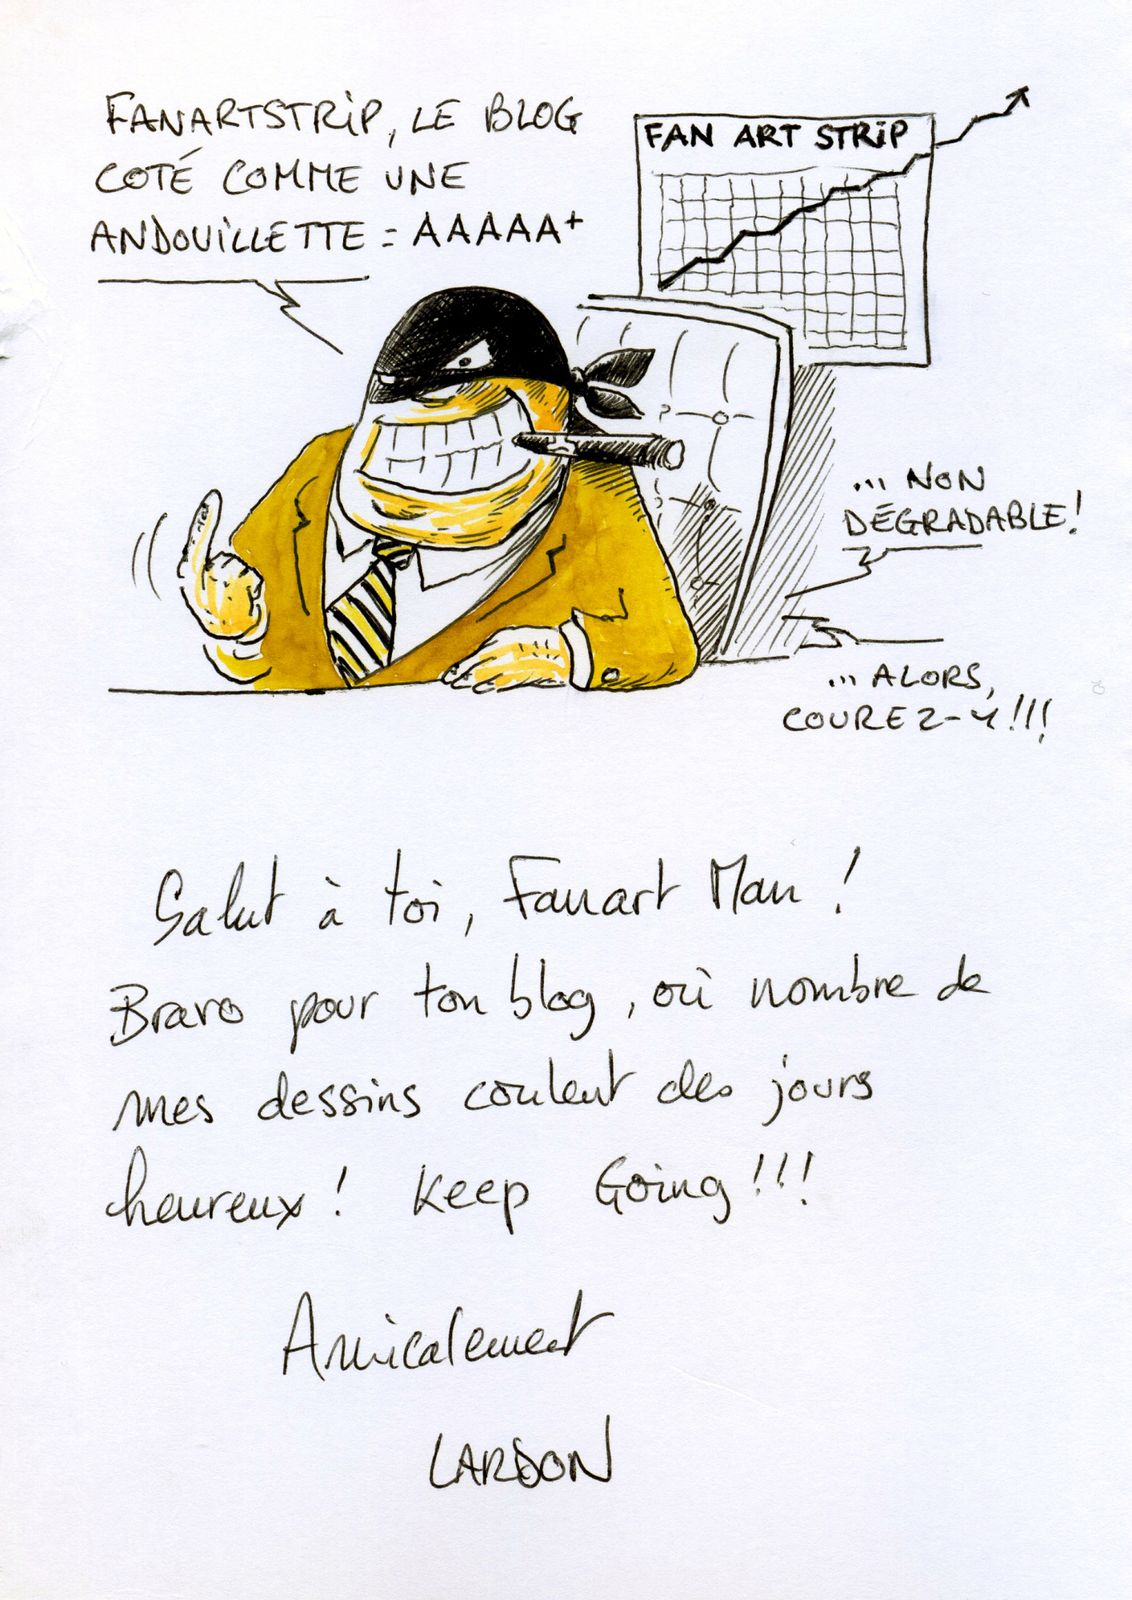 FANARTSTRIP, LE BLOG
COTÉ COMME UNE
ANDOUILLETTE = AAAAA+
FAN ART STRIP
... NON
DÉGRADABLE!
... ALORS,
COUREZ-Y!!!
Salut à toi, Fanart Man !
Bravo pour ton blog, où nombre de
mes dessins coulent des jours
heureux ! Keep Going !!!
Amicalement
LARDON